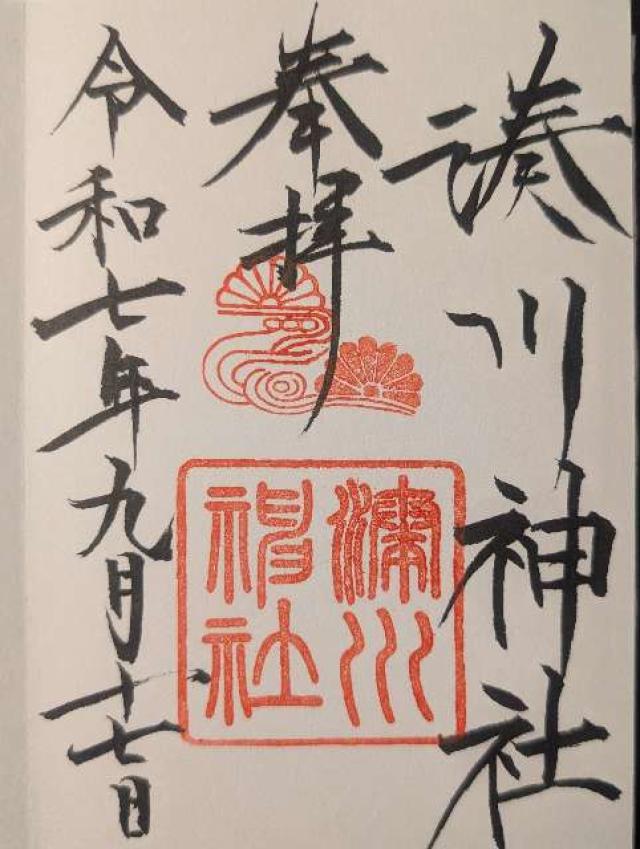 湊川神社
奉拝
湊川
神社
令和七年九月十七日